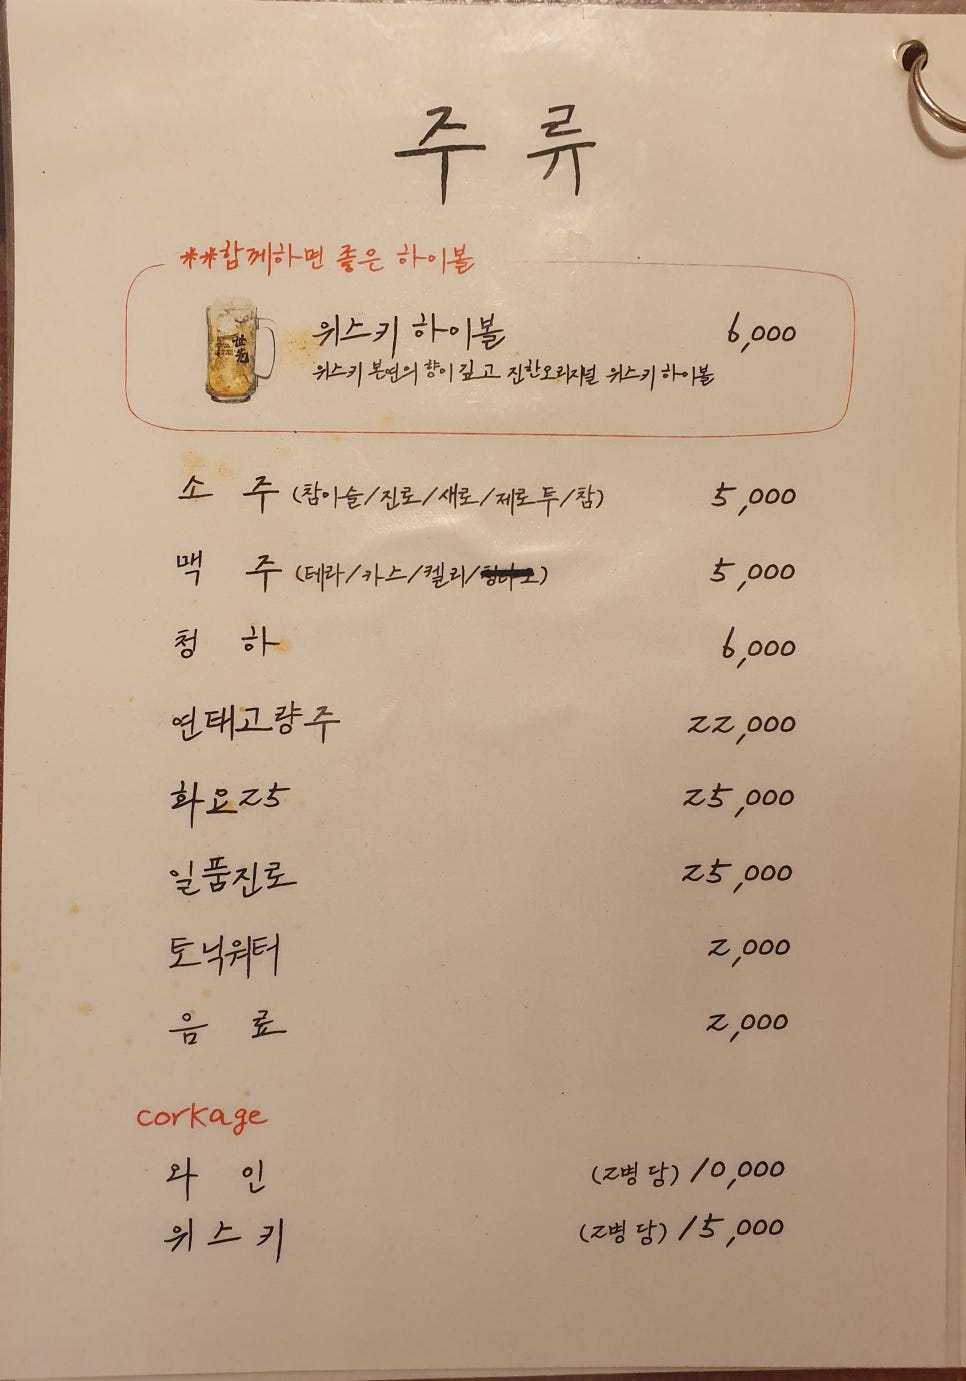 주 류
**함께하면 좋은 하이볼
世先
위스키 하이볼 6,000
위스키 본연의 향이 깊고 진한오리지널 위스키 하이볼
소 주 (참이슬/진로/새로/제로투/참) 5,000
맥 주 (테라/카스/켈리/) 5,000
청 하 6,000
연태고량주 22,000
화요25 25,000
일품진로 25,000
토닉워터 2,000
음 료 2,000
corkage
와 인 (2병 당) 10,000
위스키 (2병 당) 15,000